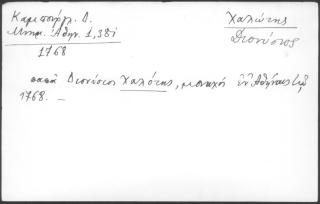 Καμπούρογλ. Δ.
Μνημ. Ἀθην. 1, 381
1768
Χαλώτης
Διονύσιος
παπᾶ Διονύσιος Χαλότης, μοναχός ἐν Ἀθήναις
1768. —